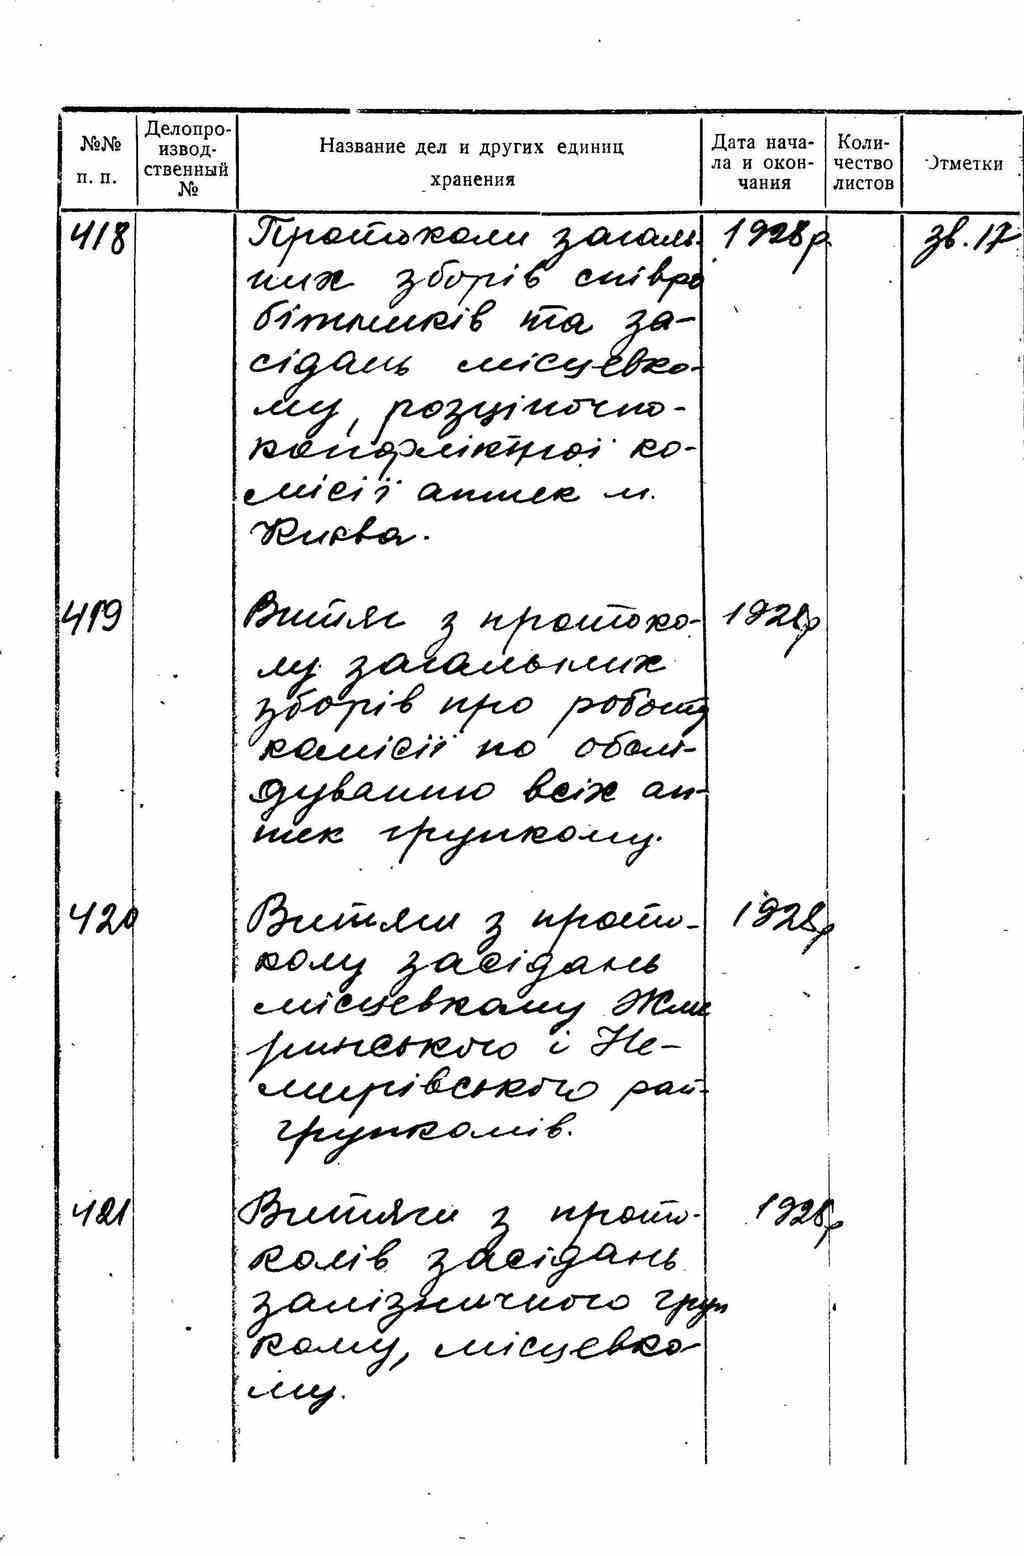 №№
п. п.
Делопро-
извод-
ственный
№
Название дел и других единиц
хранения
Дата нача-
ла и окон-
чания
Коли-
чество
листов
Отметки
418 Протоколи загаль- 1928р. зв.17
них зборів співро
бітників та за-
сідань місцевко-
му, розціночно-
конфліктної ко-
місії аптек м.
Києва.
419 Витяг з протоко- 1928р
лу загальних
зборів про роботу
комісії по обслі-
дуванню всіх ап-
тек групкому.
420 Витяги з прото- 1928р
колу засідань
місцевкому Жме
ринського і Не-
мирівського рай-
групкомів.
421 Витяги з прото- 1928р
колів засідань
залізничного груп
кому, місцевко-
му.